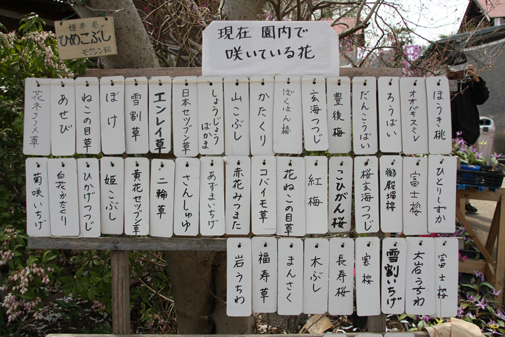 標本名
ひめこぶし
モクレン科
現在 園内で
咲いている花
ほうき桃
オオバキスミレ
ろうばい
だんこうばい
豊後梅
玄海つつじ
ぼくはん梅
かたくり
山こぶし
しょうじょうばかま
日本セツブン草
エンレイ草
雪割草
ぼけ
ねこの目草
あせび
花ネコノメ草
ひとりしずか
富士桜
御殿場桜
桜玄海つつじ
こひがん桜
紅梅
花ねこの目草
コバイモ草
赤花みつまた
あずまいちげ
さんしゅゆ
二輪草
黄花セツブン草
姫こぶし
ひかげつつじ
白花かたくり
菊咲いちげ
富士桜
大岩うちわ
雪割いちげ
寒桜
長寿桜
木ぶし
まんさく
福寿草
岩うちわ